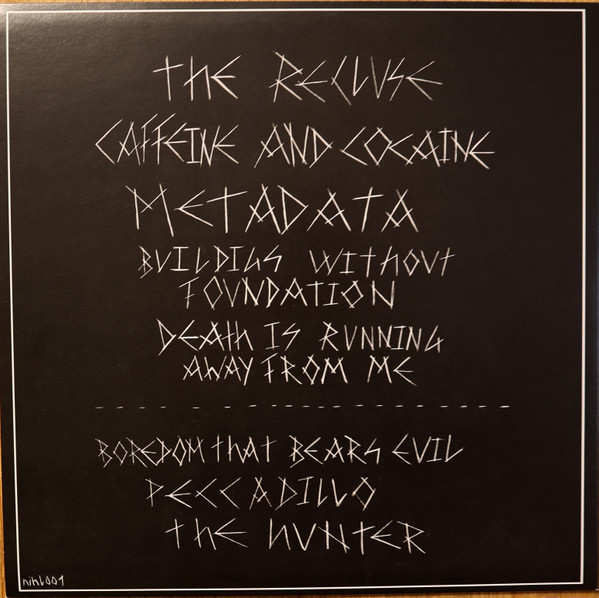 THE RECLUSE
CAFFEINE AND COCAINE
METADATA
BUILDIGS WITHOUT
FOUNDATION
DEATH IS RUNNING
AWAY FROM ME
BOREDOM THAT BEARS EVIL
PECCADILLO
THE HUNTER
nihl001